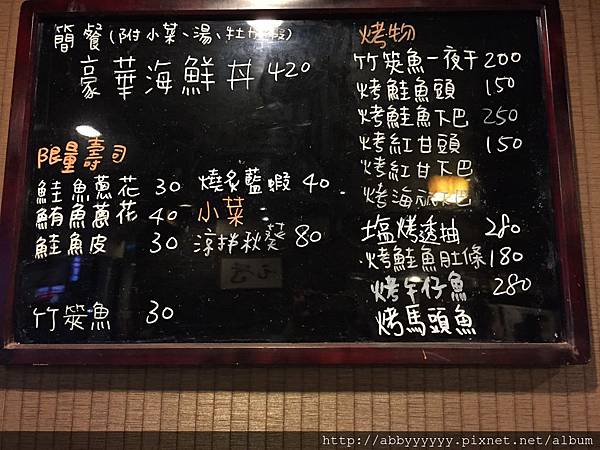 簡餐(附小菜、湯、牡
豪華海鮮丼 420
限量壽司
鮭魚蔥花 30
鮪魚蔥花 40
鮭魚皮 30
竹筴魚 30
燒炙藍蝦 40
小菜:
涼拌秋葵 80
烤物
竹筴魚一夜干 200
烤鮭魚頭 150
烤鮭魚下巴 250
烤紅甘頭 150
烤紅甘下巴
烤海 下巴
塩烤透抽 280
烤鮭魚肚條 180
烤午仔魚 280
烤馬頭魚
http://abbyyyyyy.pixnet.net/album